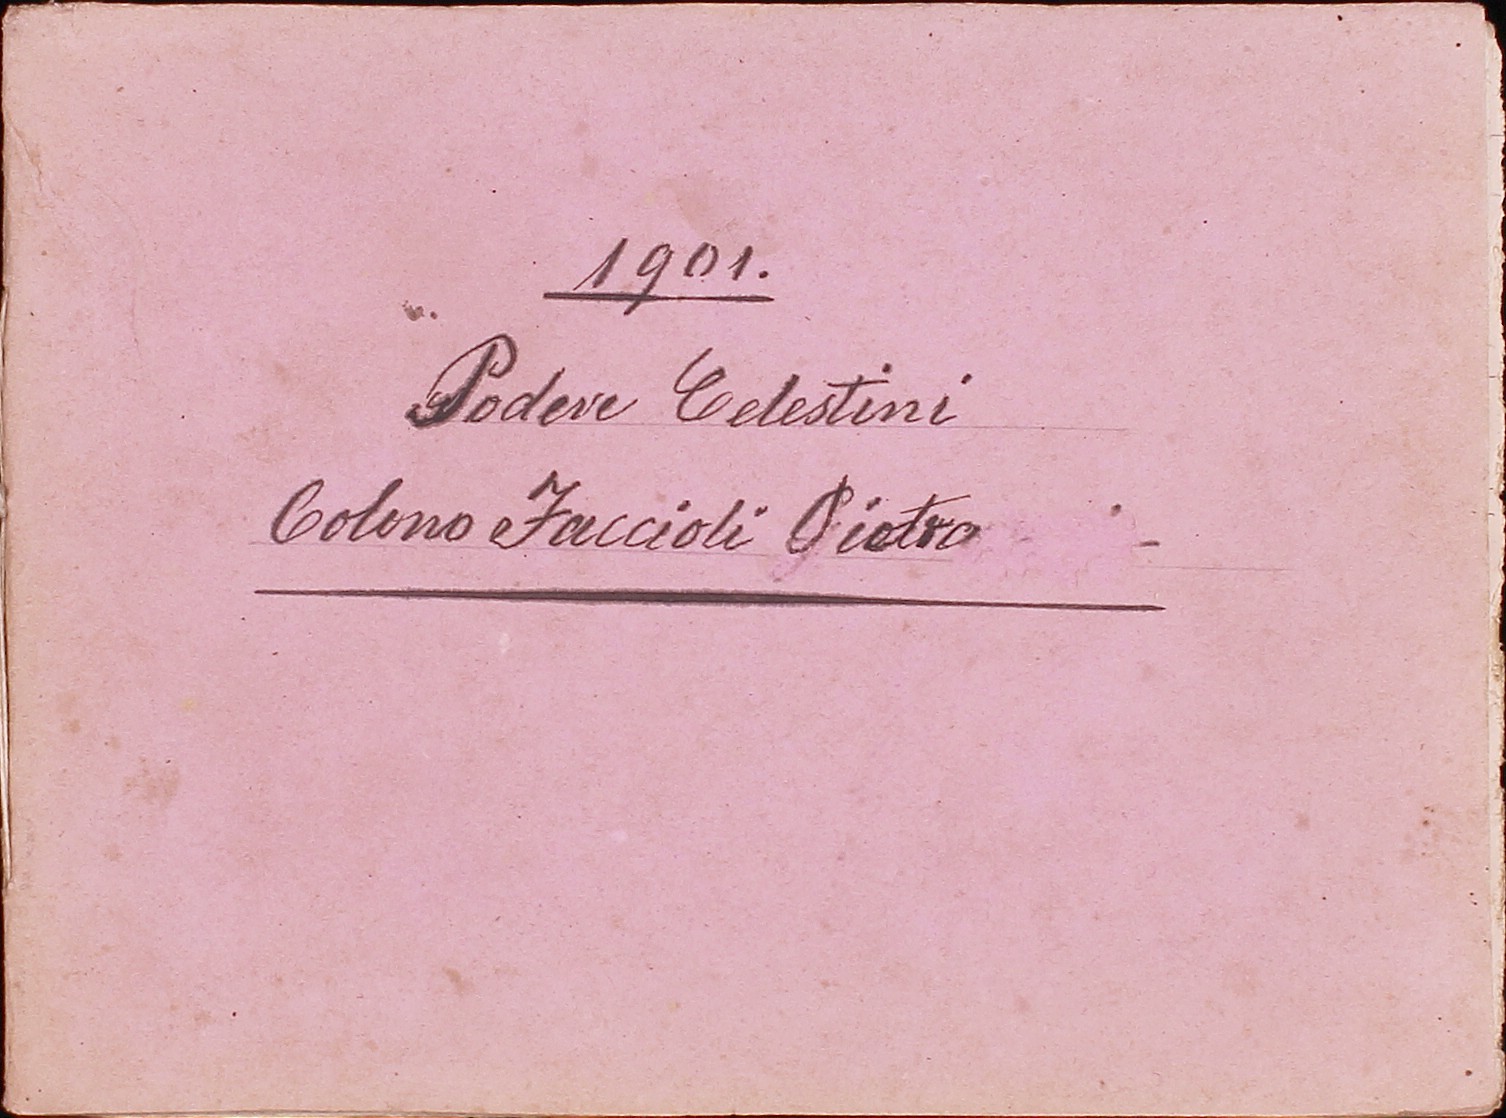 1901.
Podere Celestini
Colono Faccioli Pietro -